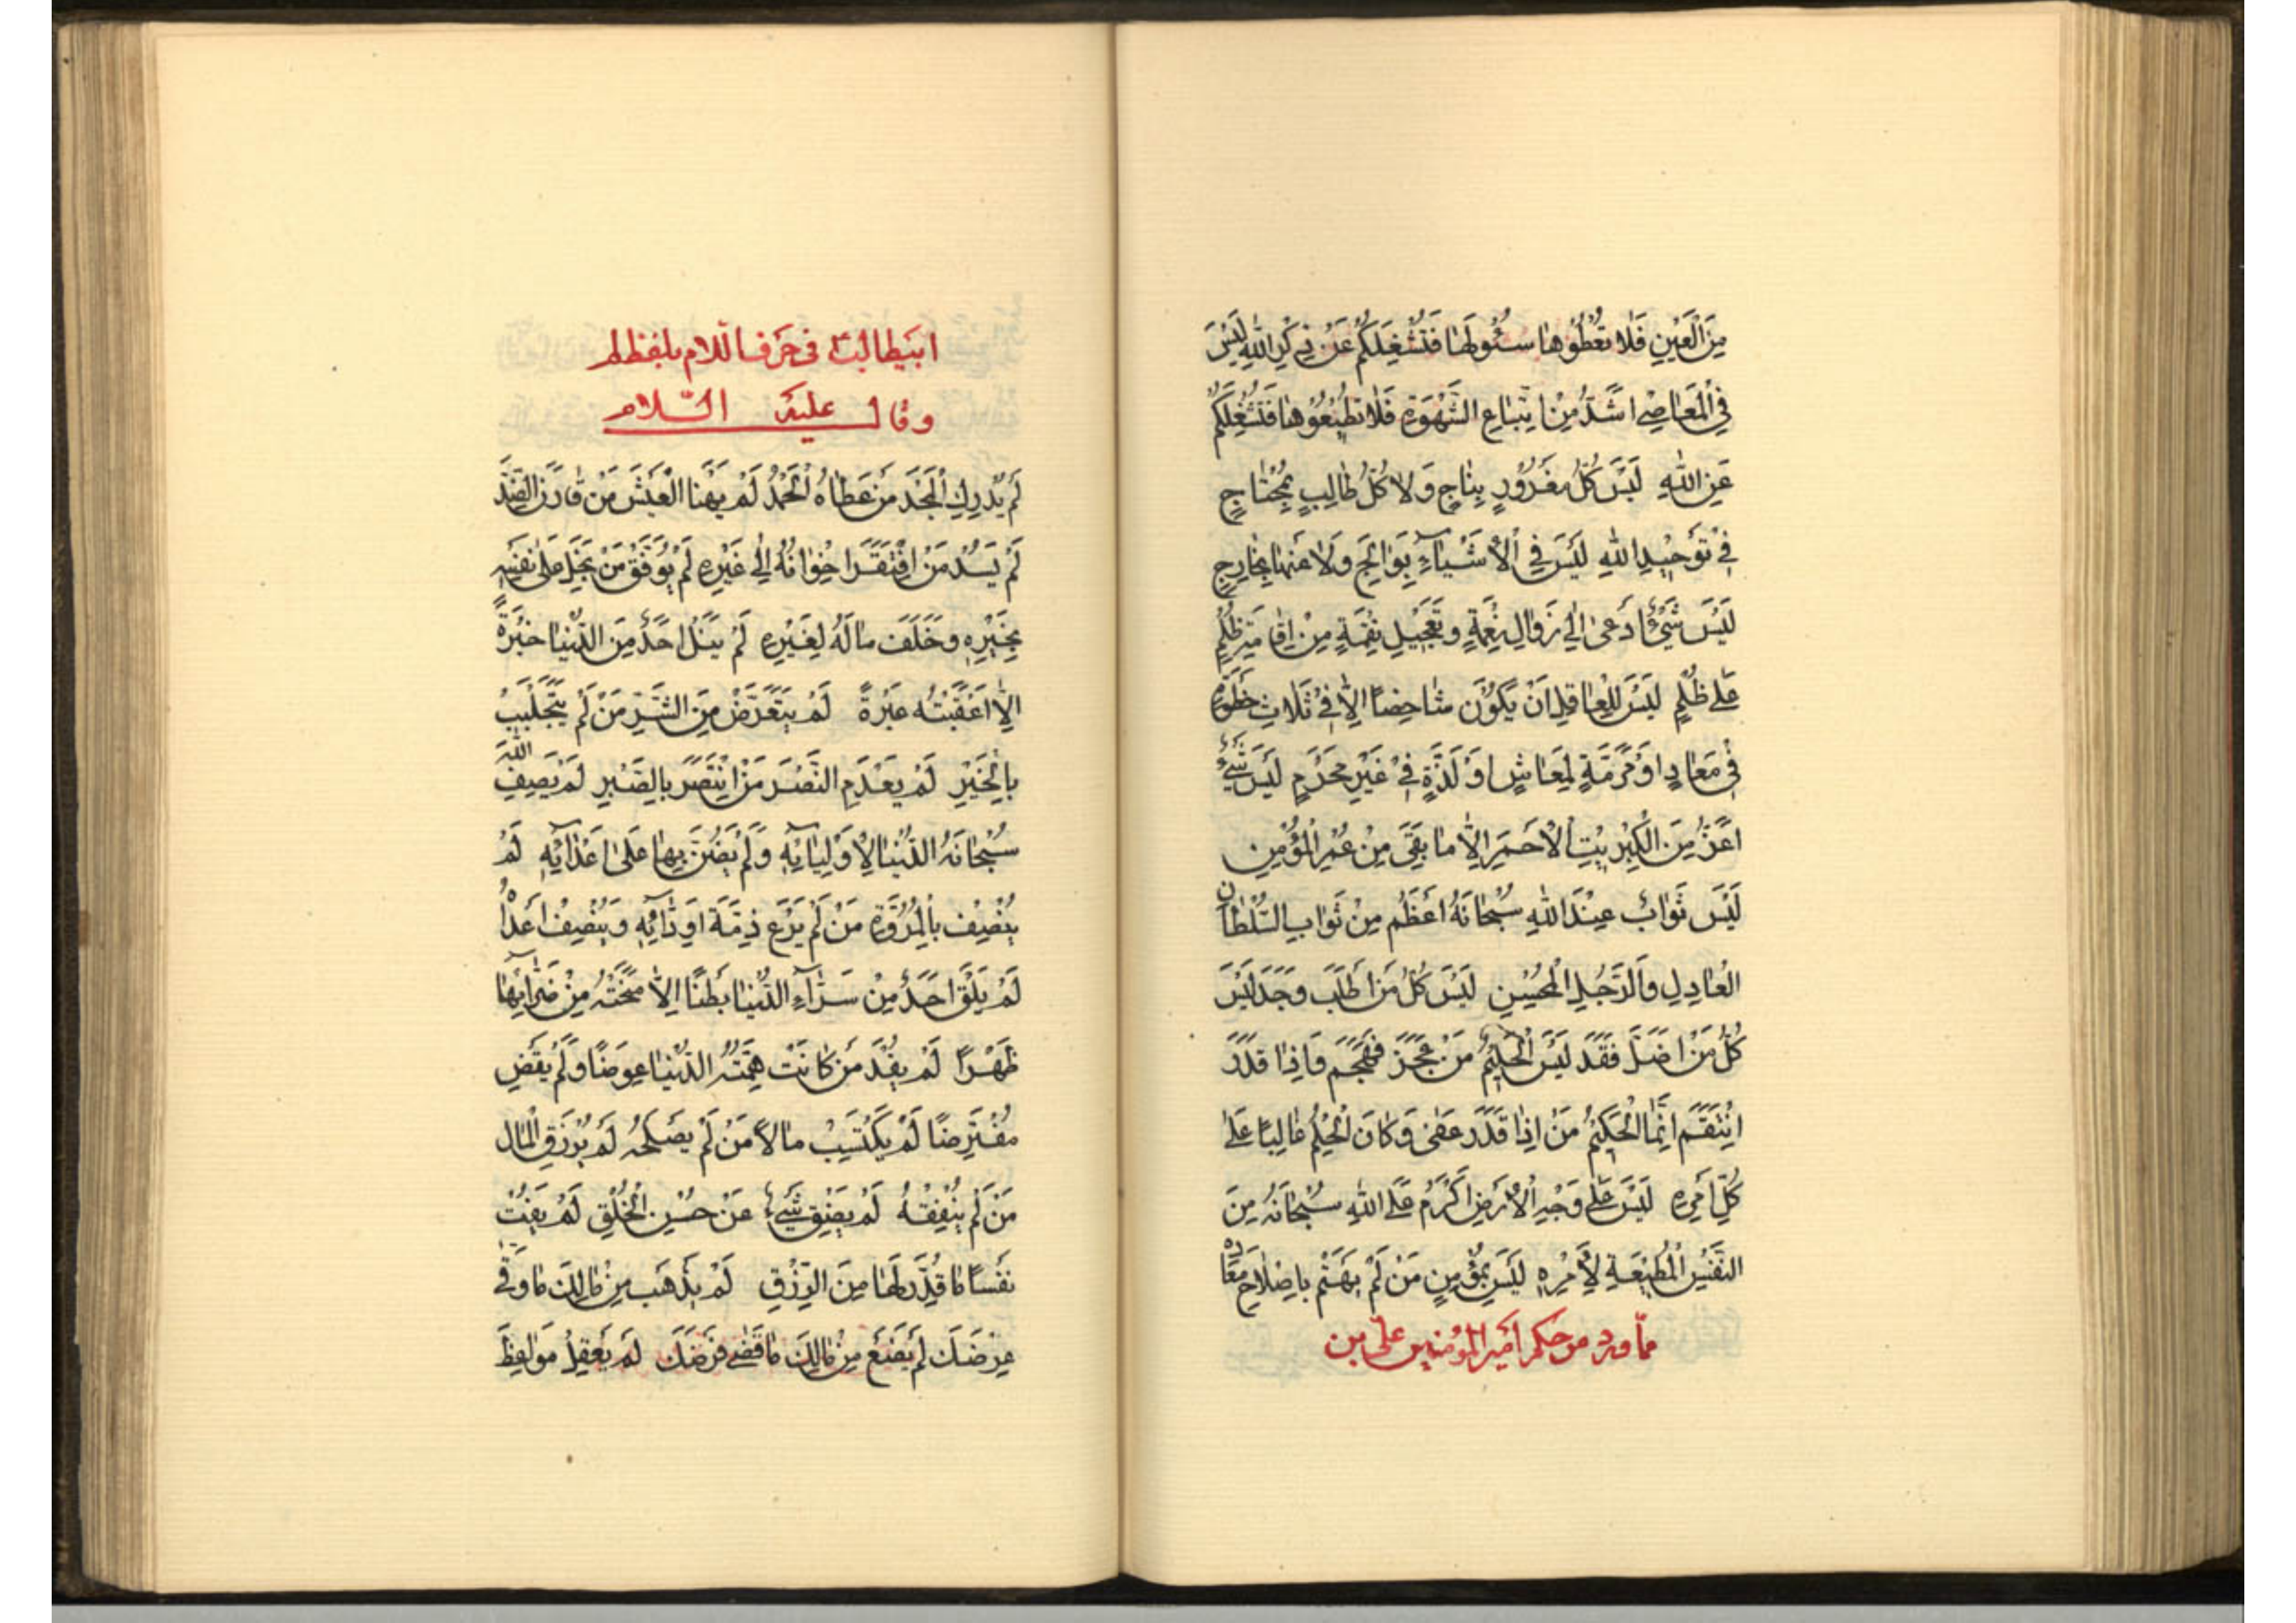 مِنَ الْعَيْنِ فَلا تُعْطُوها سُئُولَها فَتَشْغَلَكُمْ عَنْ ذِكْرِ اللهِ لَيْسَ
فِي الْمَعاصِي اَشَدُّ مِنْ اِتِّباعِ الشَّهْوَةِ فَلا تُطيعُوها فَتَشْغَلَكُمْ
عَنِ اللهِ لَيْسَ كُلُّ مَغْرُورٍ بِناجٍ وَلا كُلُّ طالِبٍ بِمُحْتاجٍ
فِي تَوْحيدِ اللهِ لَيْسَ فِي الْأَشْياءِ بِوالِجٍ وَلا عَنْها بِخارِجٍ
لَيْسَ شَيْءٌ اَدْعى اِلى زَوالِ نِعْمَةٍ وَتَعْجيلِ نِقْمَةٍ مِنْ اِقامَةِ ظُلْمٍ
عَلى ظُلْمٍ لَيْسَ لِلْعاقِلِ اَنْ يَكُونَ شاخِصًا اِلّا في ثَلاثٍ خُطْوَةٍ
في مَعادٍ اَوْ مَرَمَّةٍ لِمَعاشٍ اَوْ لَذَّةٍ في غَيْرِ مُحَرَّمٍ لَيْسَ شَيْءٌ
اَعَزُّ مِنَ الْكِبْريتِ الْأَحْمَرِ اِلّا ما بَقِيَ مِنْ عُمْرِ الْمُؤْمِنِ
لَيْسَ ثَوابٌ عِنْدَ اللهِ سُبْحانَهُ اَعْظَمُ مِنْ ثَوابِ السُّلْطانِ
الْعادِلِ وَالرَّجُلِ الْمُحْسِنِ لَيْسَ كُلُّ مَنْ طَلَبَ وَجَدَ لَيْسَ
كُلُّ مَنْ اَضَلَّ فَقَدَ لَيْسَ الْحَليمُ مَنْ عَجَزَ فَهَجَمَ فَاِذا قَدَرَ
اِنْتَقَمَ اِنَّمَا الْحَكيمُ مَنْ اِذا قَدَرَ عَفى وَكانَ الْحِلْمُ غالِبًا عَلى
كُلِّ اَمْرِهِ لَيْسَ عَلى وَجْهِ الْأَرْضِ اَكْرَمُ عَلَى اللهِ سُبْحانَهُ مِنَ
النَّفْسِ الْمُطيعَةِ لِأَمْرِهِ لَيْسَ بِمُؤْمِنٍ مَنْ لَمْ يَهْتَمَّ بِاِصْلاحِ مَعادِهِ
ممّا ورد من حكم أمير المؤمنين علىّ بن
ابيطالبٍ فى حَرف اللّام بلفظ لم
وقال عليه السّلام
لَمْ يُدْرِكِ الْمَجْدَ مَنْ عَطاهُ الْحَمْدُ لَمْ يَهْنَا الْعَيْشَ مَنْ قارَنَ الضِّدَّ
لَمْ يَسُدْ مَنِ افْتَقَرَ اِخْوانُهُ اِلى غَيْرِهِ لَمْ يُوَفَّقْ مَنْ بَخِلَ عَلى نَفْسِهِ
بِخَيْرِهِ وَخَلَّفَ مالَهُ لِغَيْرِهِ لَمْ يَنَلْ اَحَدٌ مِنَ الدُّنْيا حَبْرَةً
اِلّا اَعْقَبَتْهُ عَبْرَةً لَمْ يَتَعَرَّضْ مِنَ الشَّرِّ مَنْ لَمْ يَتَجَلْبَبْ
بِالْخَيْرِ لَمْ يَعْدَمِ النَّصْرَ مَنِ انْتَصَرَ بِالصَّبْرِ لَمْ يَصِفِ اللهُ
سُبْحانَهُ الدُّنْيا لِأَوْلِيائِهِ وَلَمْ يَضُنَّ بِها عَلى اَعْدائِهِ لَمْ
يَتَّصِفْ بِالْمُرُوَّةِ مَنْ لَمْ يَرْعَ ذِمَّةَ اَوِدّائِهِ وَيُنْصِفْ اَعْداءَ
لَمْ يَلْقَ اَحَدٌ مِنْ سَرّاءِ الدُّنْيا بَطْنًا اِلّا مَنَحَتْهُ مِنْ ضَرّائِها
ظَهْرًا لَمْ يُفِدْ مَنْ كانَتْ هِمَّتُهُ الدُّنْيا عِوَضًا وَلَمْ يَقْضِ
مُفْتَرَضًا لَمْ يَكْتَسِبْ مالًا مَنْ لَمْ يُصْلِحْهُ لَمْ يُرْزَقِ الْمالَ
مَنْ لَمْ يُنْفِقْهُ لَمْ يَضِقْ شَيْءٌ عَنْ حُسْنِ الْخُلْقِ لَمْ يَفُتْ
نَفْسًا ما قُدِّرَ لَها مِنَ الرِّزْقِ لَمْ يَذْهَبْ مِنْ مالِكَ ما وَقى
عِرْضَكَ لَمْ يَضَعْ مِنْ مالِكَ ما قَضى فَرْضَكَ لَمْ يَعْقِلْ مَواعِظَ